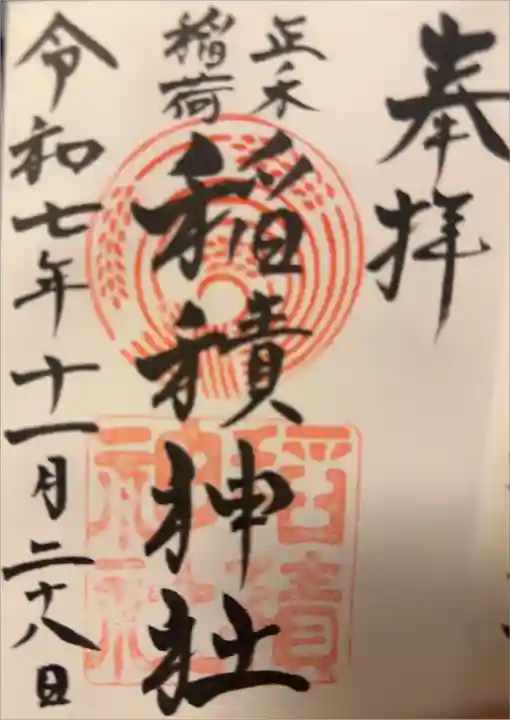 奉拝
正ノ木
稲荷
稲積神社
令和七年十一月二十八日
稲積
神社